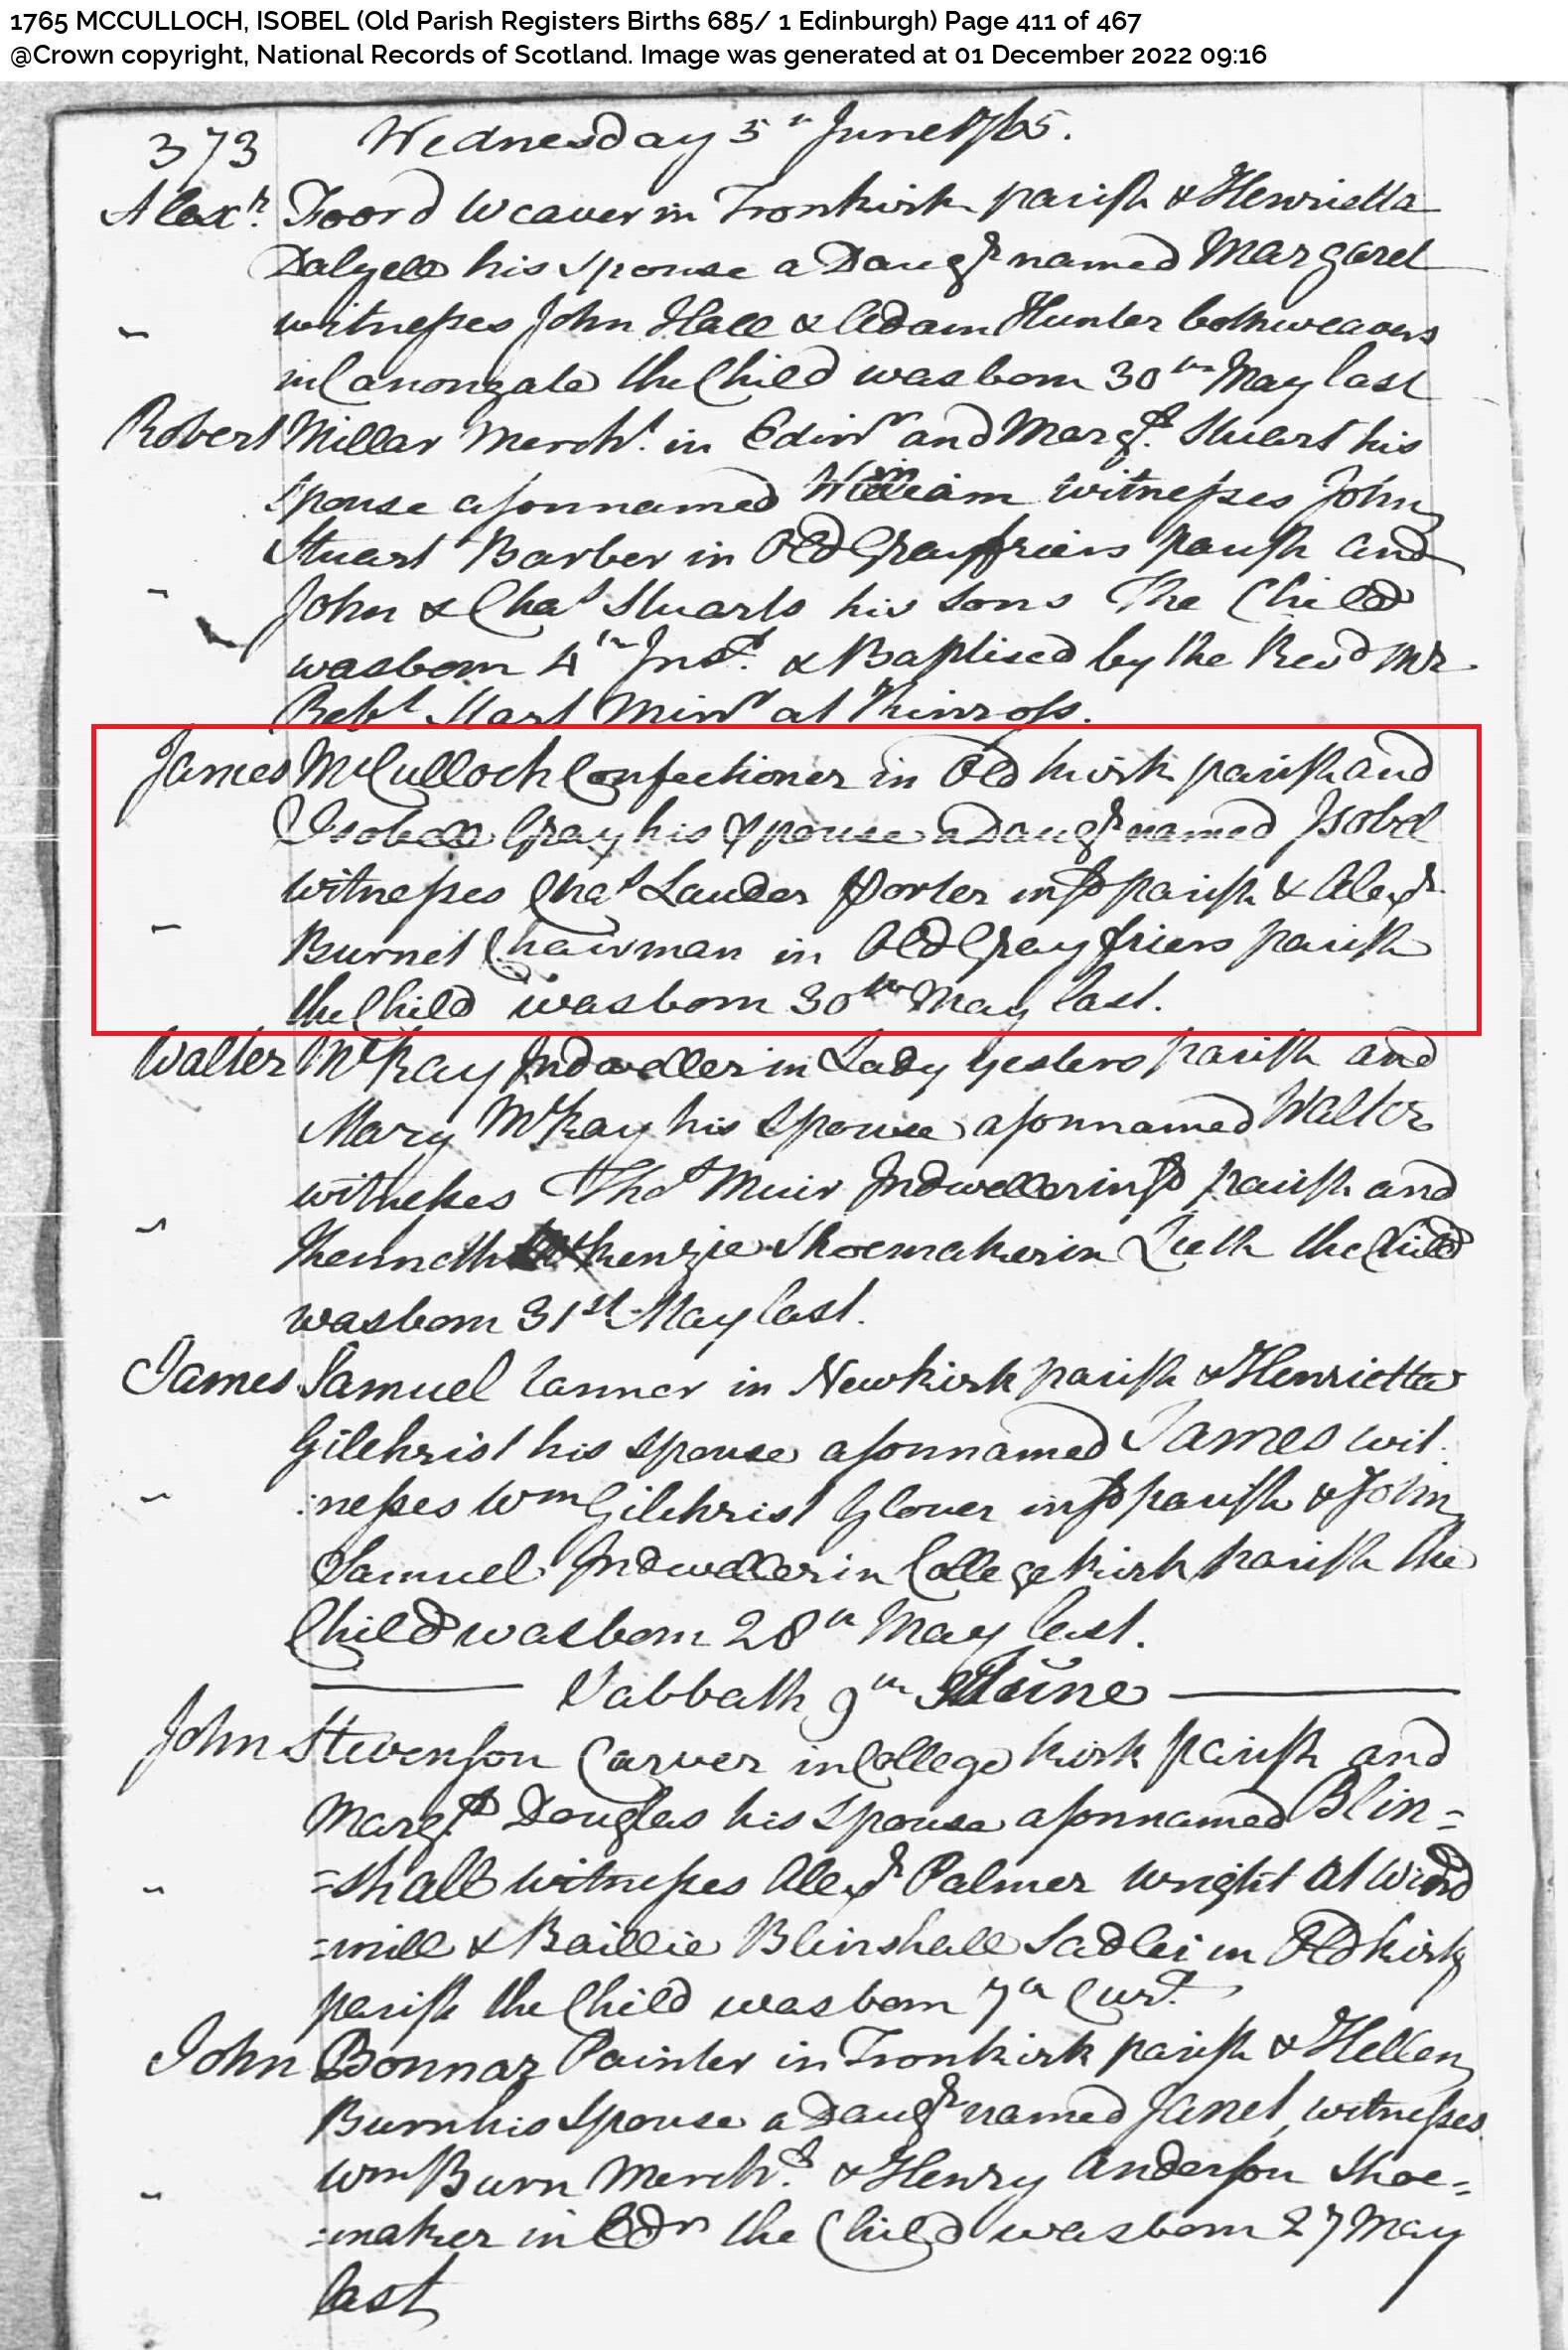 1765 MCCULLOCH, ISOBEL (Old Parish Registers Births 685/ 1 Edinburgh) Page 411 of 467
@Crown copyright, National Records of Scotland. Image was generated at 01 December 2022 09:16
373 Wednesday 5th June 1765.
Alexr. Foord Weaver in Tronkirk parish & Henrietta
Dalyell his spouse a Daugr named Margaret
witnesses John Hall & Adam Hunter both weavers
in Canongate the Child was born 30th May last
Robert Millar Mercht. in Edinr and Margt. Stuart his
spouse a son named William witnesses John
Stuart Barber in Old Grayfriers parish and
John & Chas Stuarts his sons The Child
was born 4th Inst. & Baptised by the Revd Mr
Robt Start Minr at Kinross.
James McCulloch Confectioner in Old kirk parish and
Isobell Gray his Spouse a Daugr named Isobel
witnesses Chas Lauder Porter in sd parish & Alexr.
Burnet Chairman in Old Gray friers parish
the Child was born 30th May last.
Walter McKay Indweller in Lady yesters parish and
Mary McKay his Spouse a son named Walter
witnesses Thos Muir Indweller in sd parish and
Kenneth McKenzie Shoemaker in Leith the Child
was born 31st May last.
James Samuel tanner in Newkirk parish & Henrietta
Gilchrist his spouse a son named James wit
:nesses Wm Gilchrist Glover in sd parish & John
Samuel Indweller in College kirk parish the
Child was born 28th May last.
Sabbath 9th June
John Stevenson Carver in College kirk parish and
Margt. Douglas his spouse a son named Blin=
=shall witnesses Alexr Palmer wright at Wind
=mill & Baillie Blinshall Sadler in Old kirk
parish the Child was born 7th Curt.
John Bonnar Painter in Tronkirk parish & Hellen
Burn his spouse a Daugr named Janet, witnesses
Wm Burn Mercht. & Henry Anderson Shoe=
=maker in Edr the Child was born 27 May
last